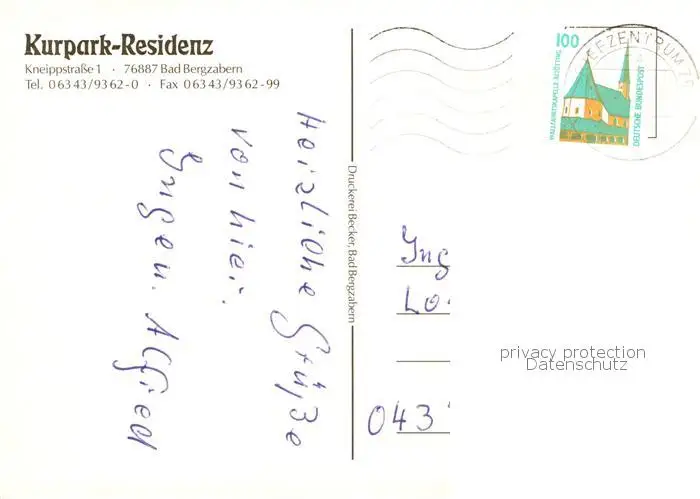 Kurpark-Residenz
Kneippstraße 1 · 76887 Bad Bergzabern
Tel. 0 63 43 / 93 62-0 · Fax 0 63 43 / 93 62-99
Herzliche Grüße
von hier.
Alfred
Druckerei Becker, Bad Bergzabern
100
WALLFAHRTSKAPELLE ALTÖTTING
DEUTSCHE BUNDESPOST
BRIEFZENTRUM 76
Ing
Lo
043
privacy protection
Datenschutz